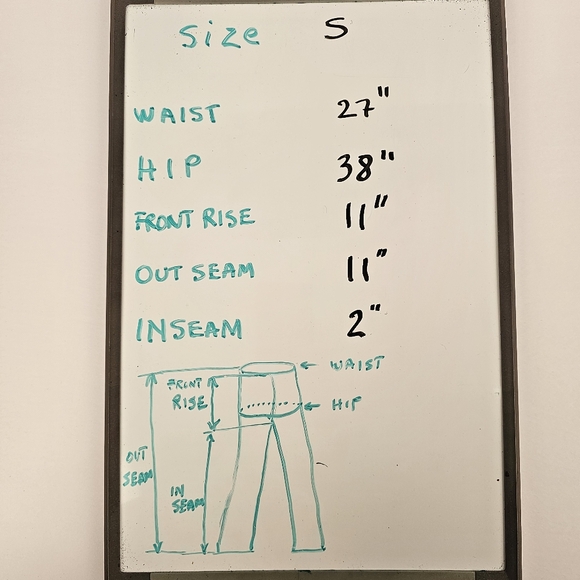 Size S
WAIST 27"
HIP 38"
FRONT RISE 11"
OUT SEAM 11"
INSEAM 2"
WAIST
FRONT
RISE
HIP
OUT
SEAM
IN
SEAM